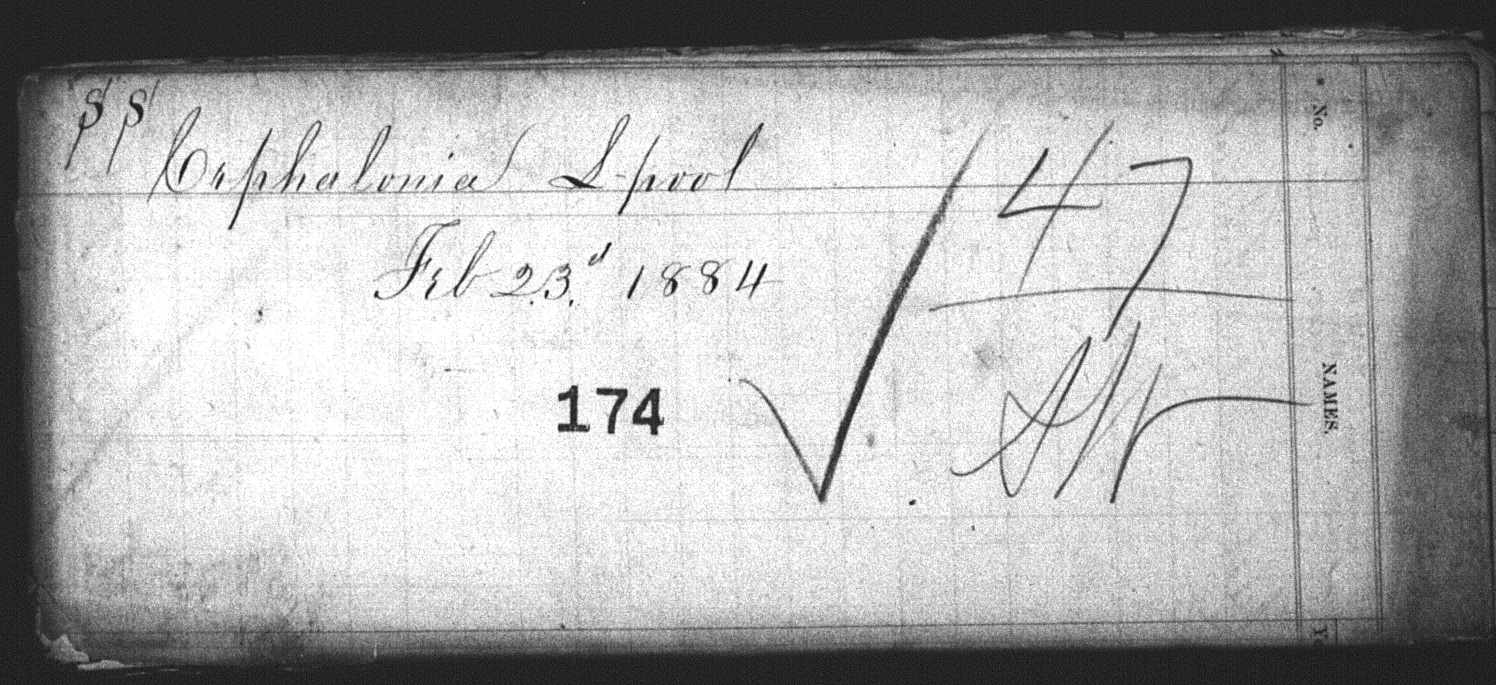 SS Cephalonia L-pool
Feb 23d 1884
174
47
No.
NAMES.